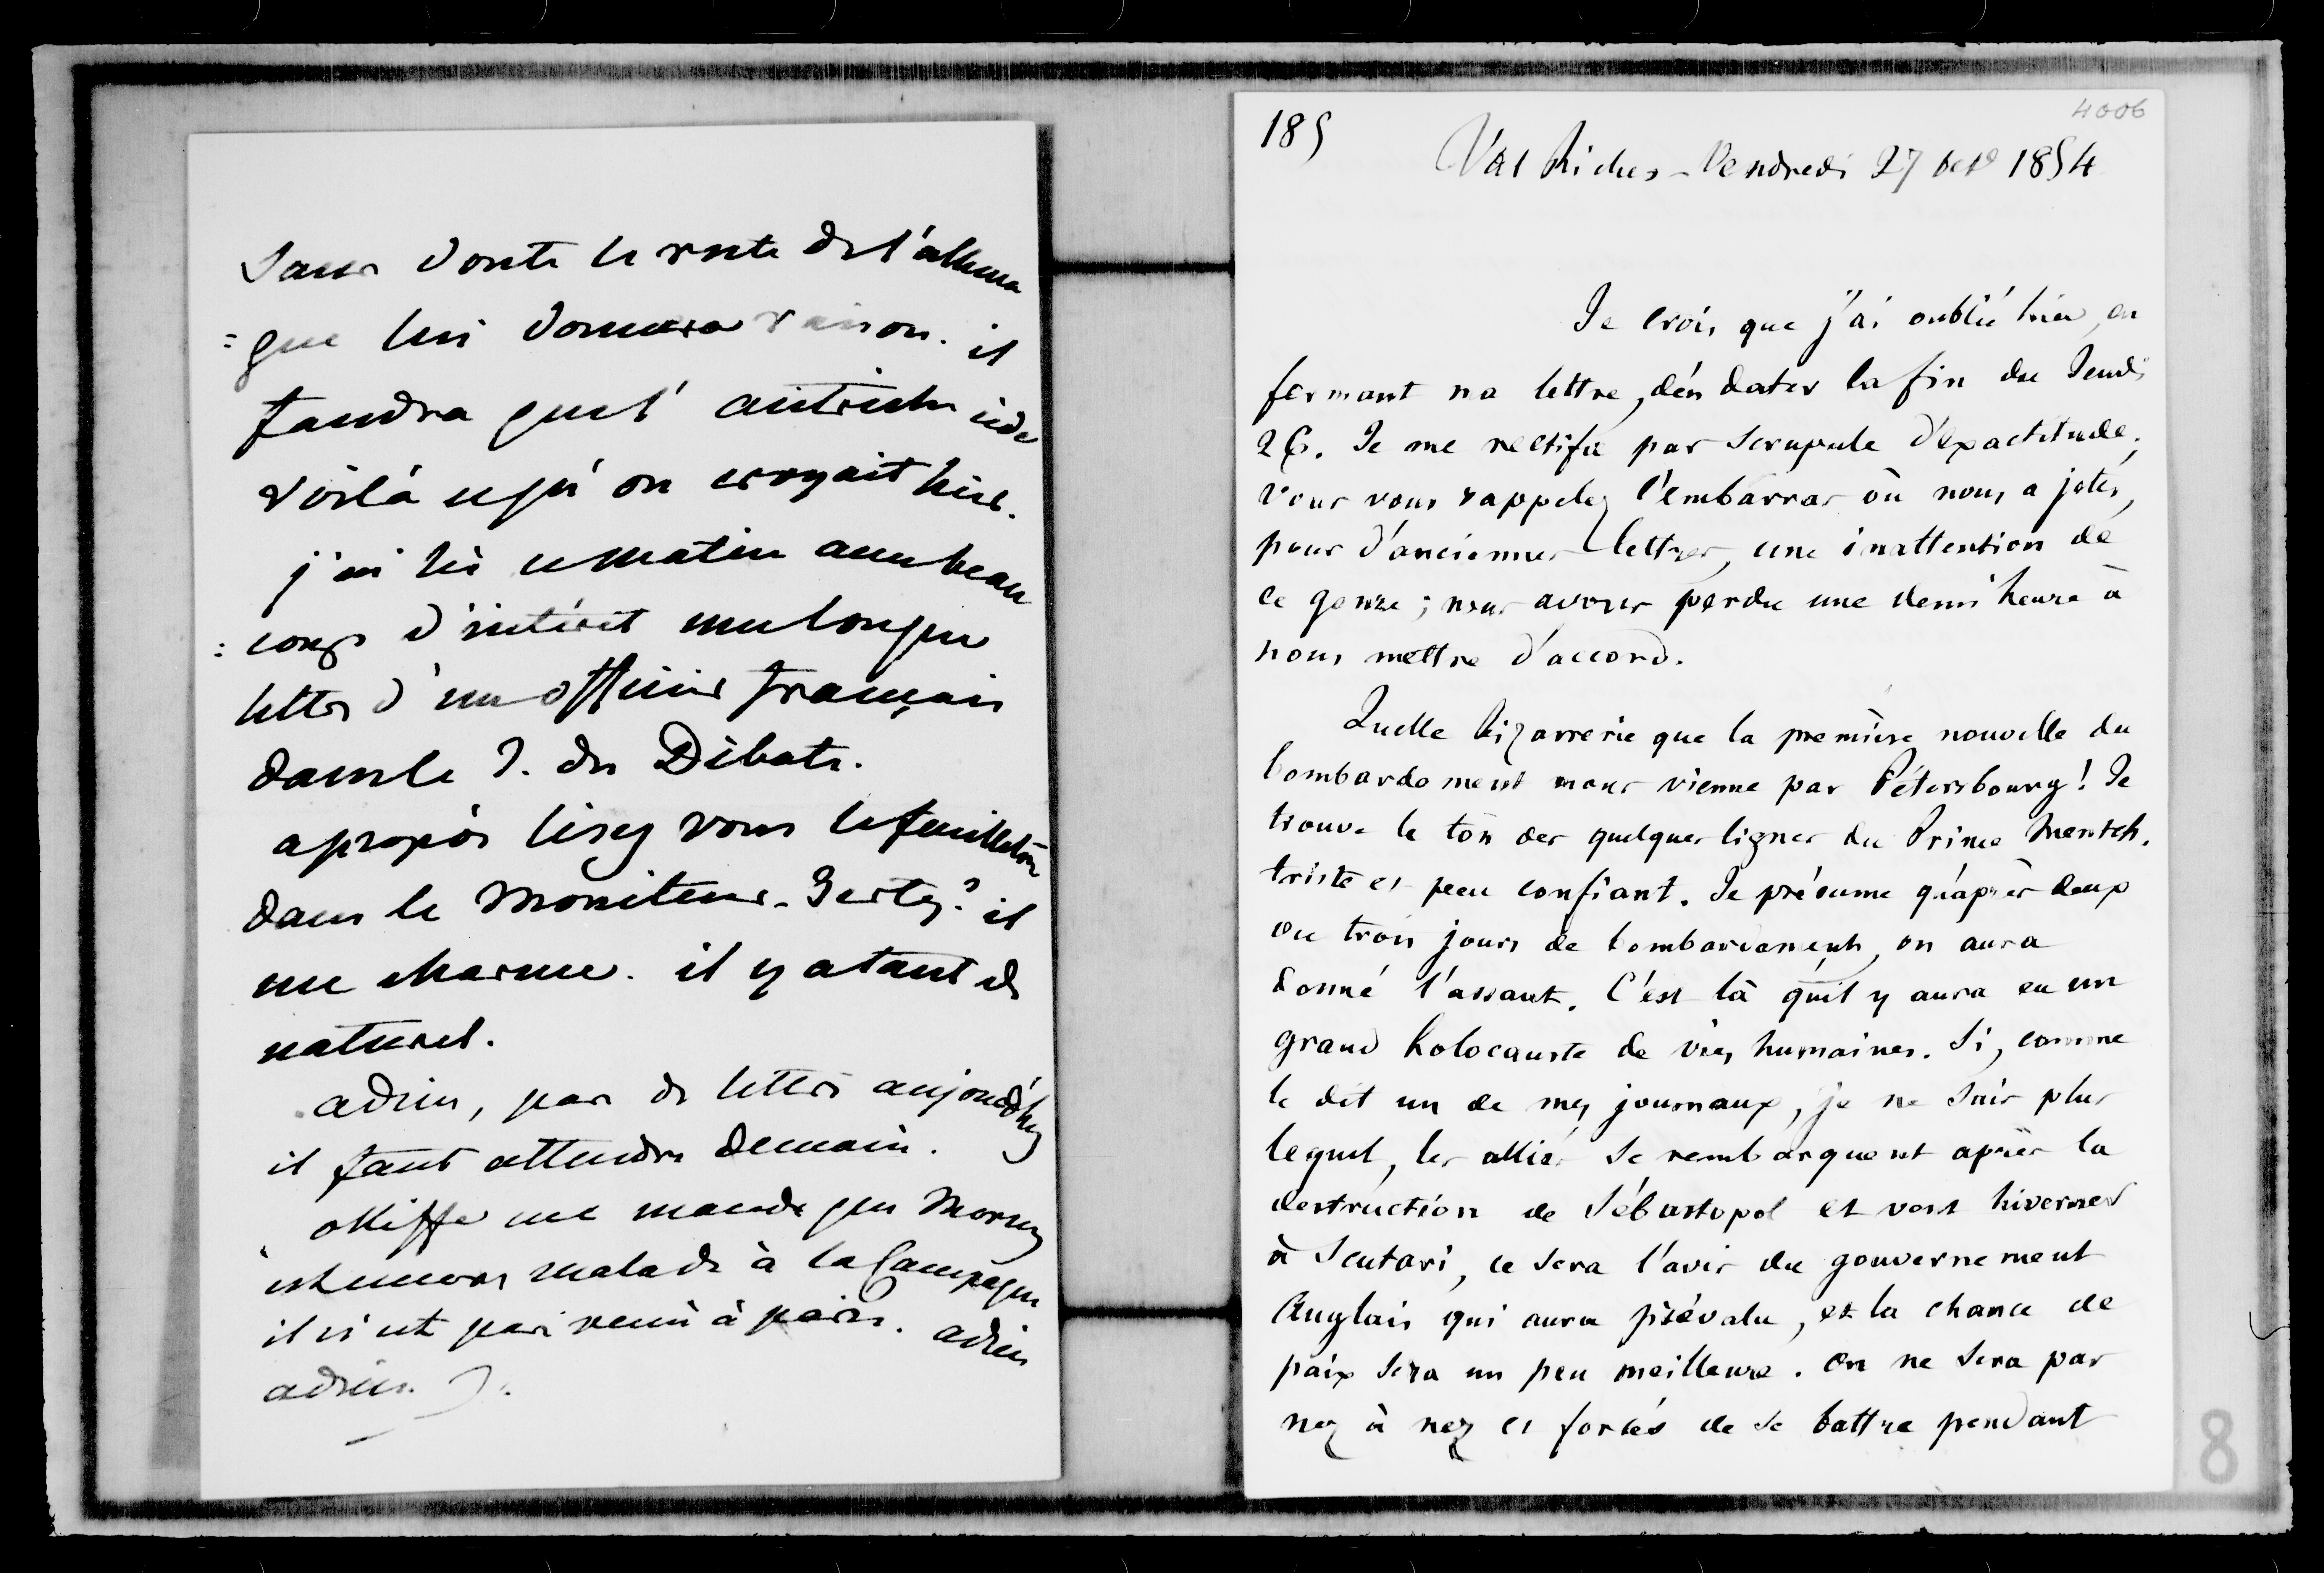 sans doute le reste de l'allema
=gne lui donnera raison. il
faudra que l'autriche cède
voilà ce qu'on croyait hier.
j'ai lu ce matin avec beau
=coup d'intérêt une longue
lettre d'un officier français
dans le J. des Débats.
apropos lisez vous le feuilleton
dans le Moniteur. il
me charme. il y a tant de
naturel.
adieu, pas de lettre aujourd'huy
il faut attendre demain.
Oliffe me mande que Morny
est encore malade à la Campagne
il n'est pas venu à paris. adieu
adieu.
185
4006
Val Richer - Vendredi 27 Oct 1854
Je crois que j'ai oublié hier, en
fermant ma lettre, d'en dater la fin du Jeudi
26. Je me rectifie par scrupule d'exactitude.
Vous vous rappelez l'embarras où nous a jetés,
pour d'anciennes lettres, une inattention de
ce genre ; nous avons perdu une demi heure à
nous mettre d'accord.
Quelle bizarrerie que la première nouvelle du
bombardement nous vienne par Pétersbourg ! Je
trouve le ton des quelques lignes du Prince Mentsch.
triste et peu confiant. Je présume qu'après deux
ou trois jours de bombardement, on aura
donné l'assaut. C'est là qu'il y aura eu un
grand holocauste de vies humaines. Si, comme
le dit un de mes journaux, je ne sais plus
lequel, les alliés se rembarquent après la
destruction de Sébastopol et vont hiverner
à Scutari, ce sera l'avis du gouvernement
Anglais qui aura prévalu, et la chance de
paix sera un peu meilleure. On ne sera pas
nez à nez et forcés de se battre pendant
8